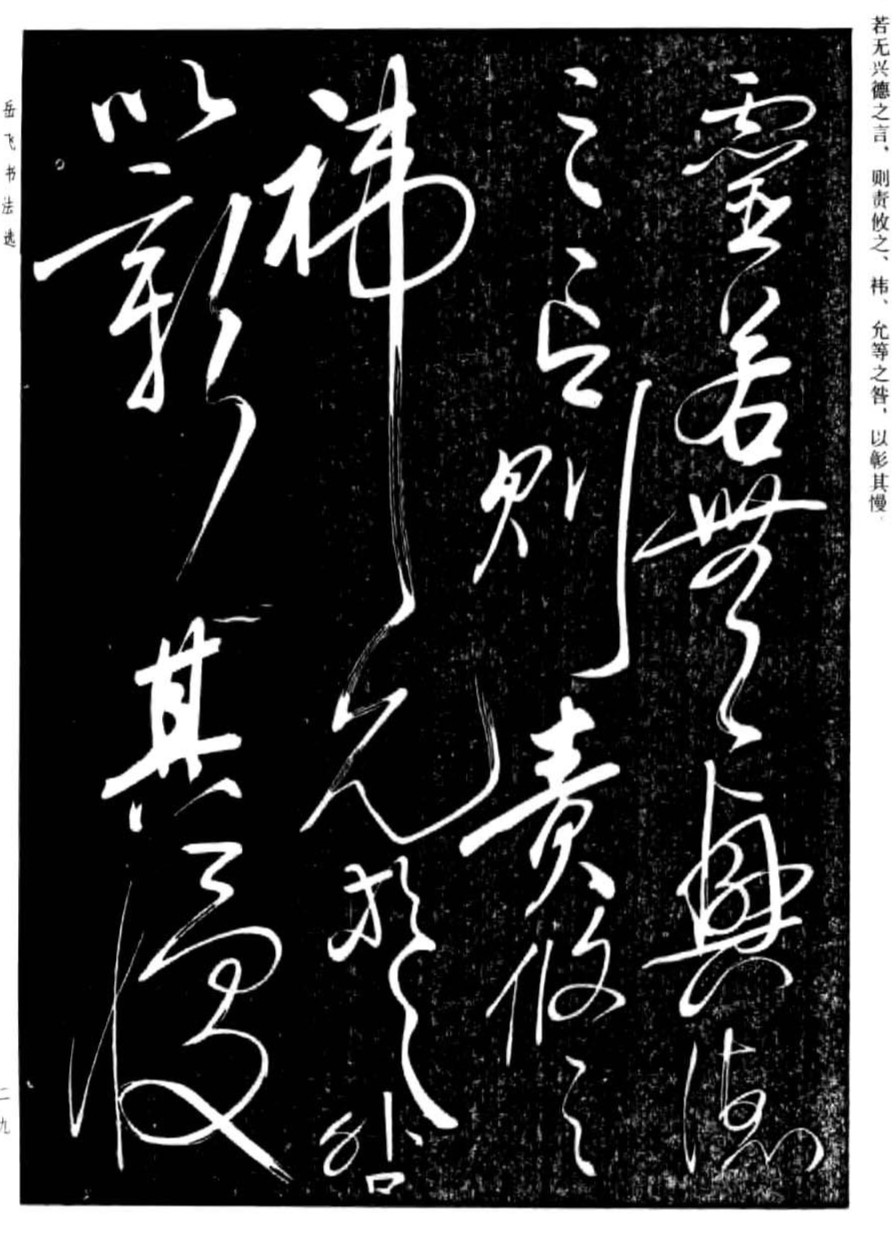 若无兴德之言，则责攸之、祎、允等之咎，以彰其慢
靈若無興德
之言則責攸之
禕允等之咎
以彰其慢
岳飞书法选
二九